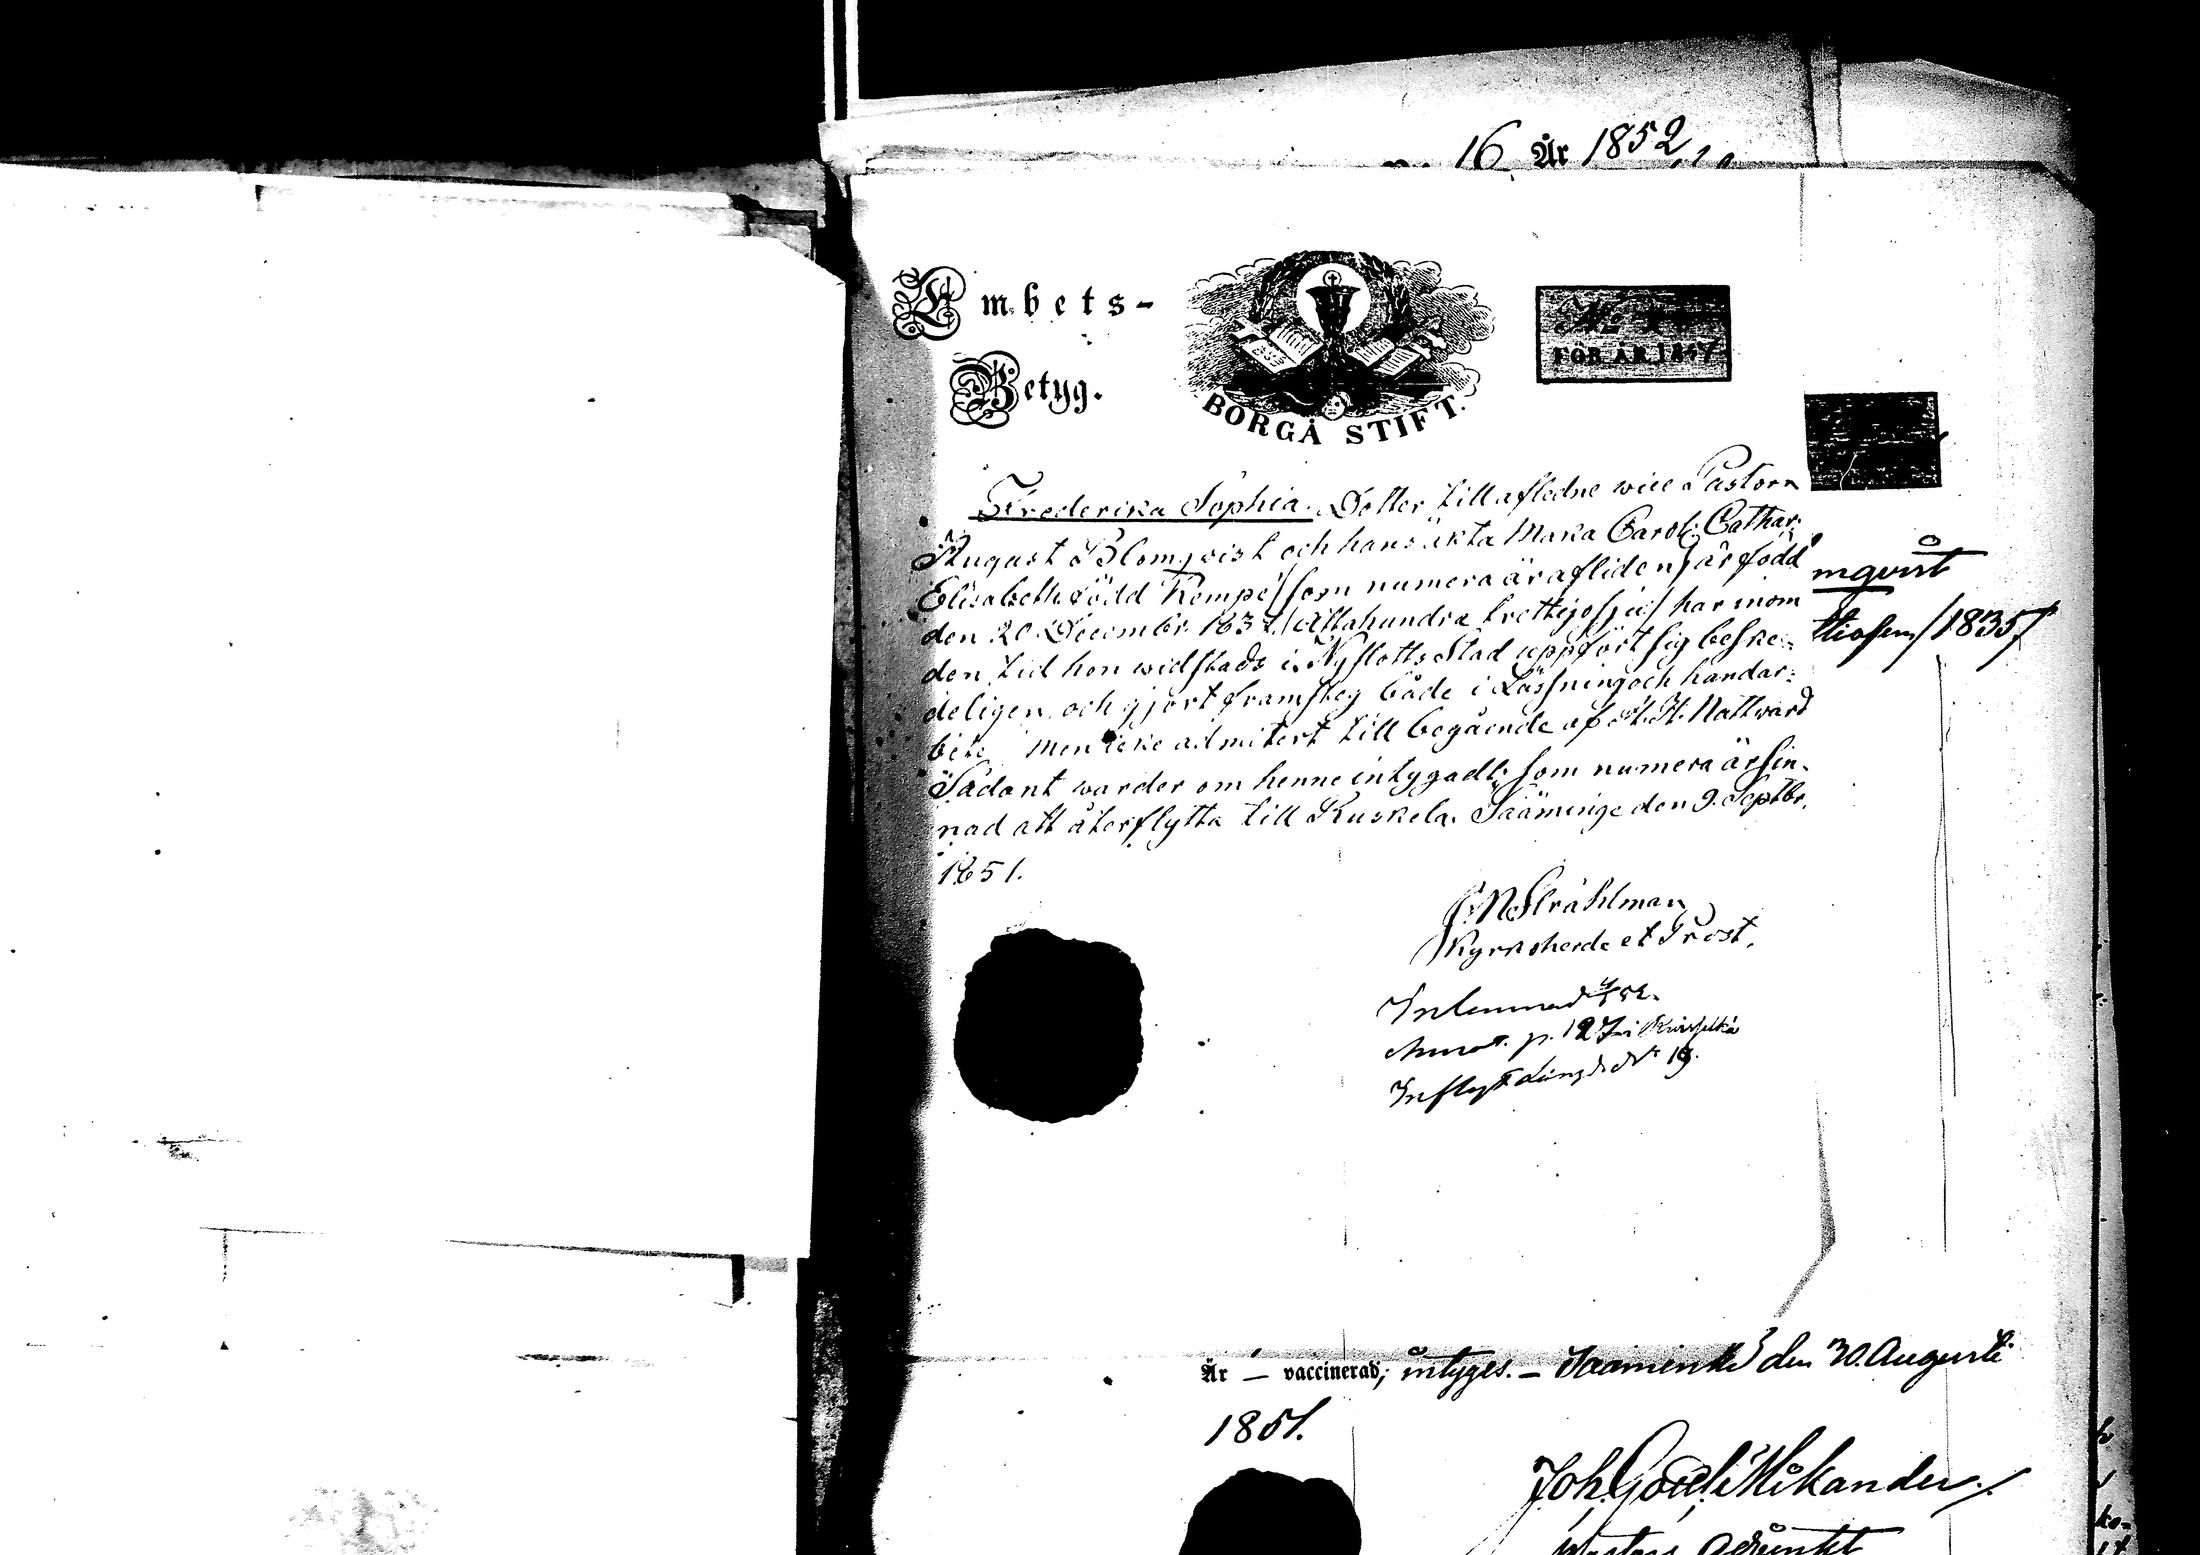 16 År 1852
Embets-
Betyg.
BORGÅ STIFT.
FÖR ÅR 1847.
Frederika Sophia. Dotter till afledne wice Pastorn
August Blomqvist och hans äkta Maka Carol: Cathar:
Elisabeth född Kempe/ som numera är afliden/ är född
den 20 Decembr. 1837/ Åttahundra trettijosju/ har inom
den tid hon widstads i Nyslotts Stad uppfört sig beske-
deligen och gjort framsteg både i Läsning och handar-
bete men icke admitert till begående af H. H. Nattward
Sådant warder om henne intygadt: som numera är sin-
nad att återflytta till Kuskela. Sääminge den 9. Septbr.
1851.
Stråhlman
Kyrkoherde et Prost.
Inlemnad
p. 127 i
Inflyt Längd. N: 19.
mqvist
/1835/
Är — vaccinerad; intyges. — den 30. Augusti
1851.
Joh. Mikander
Adjunkt